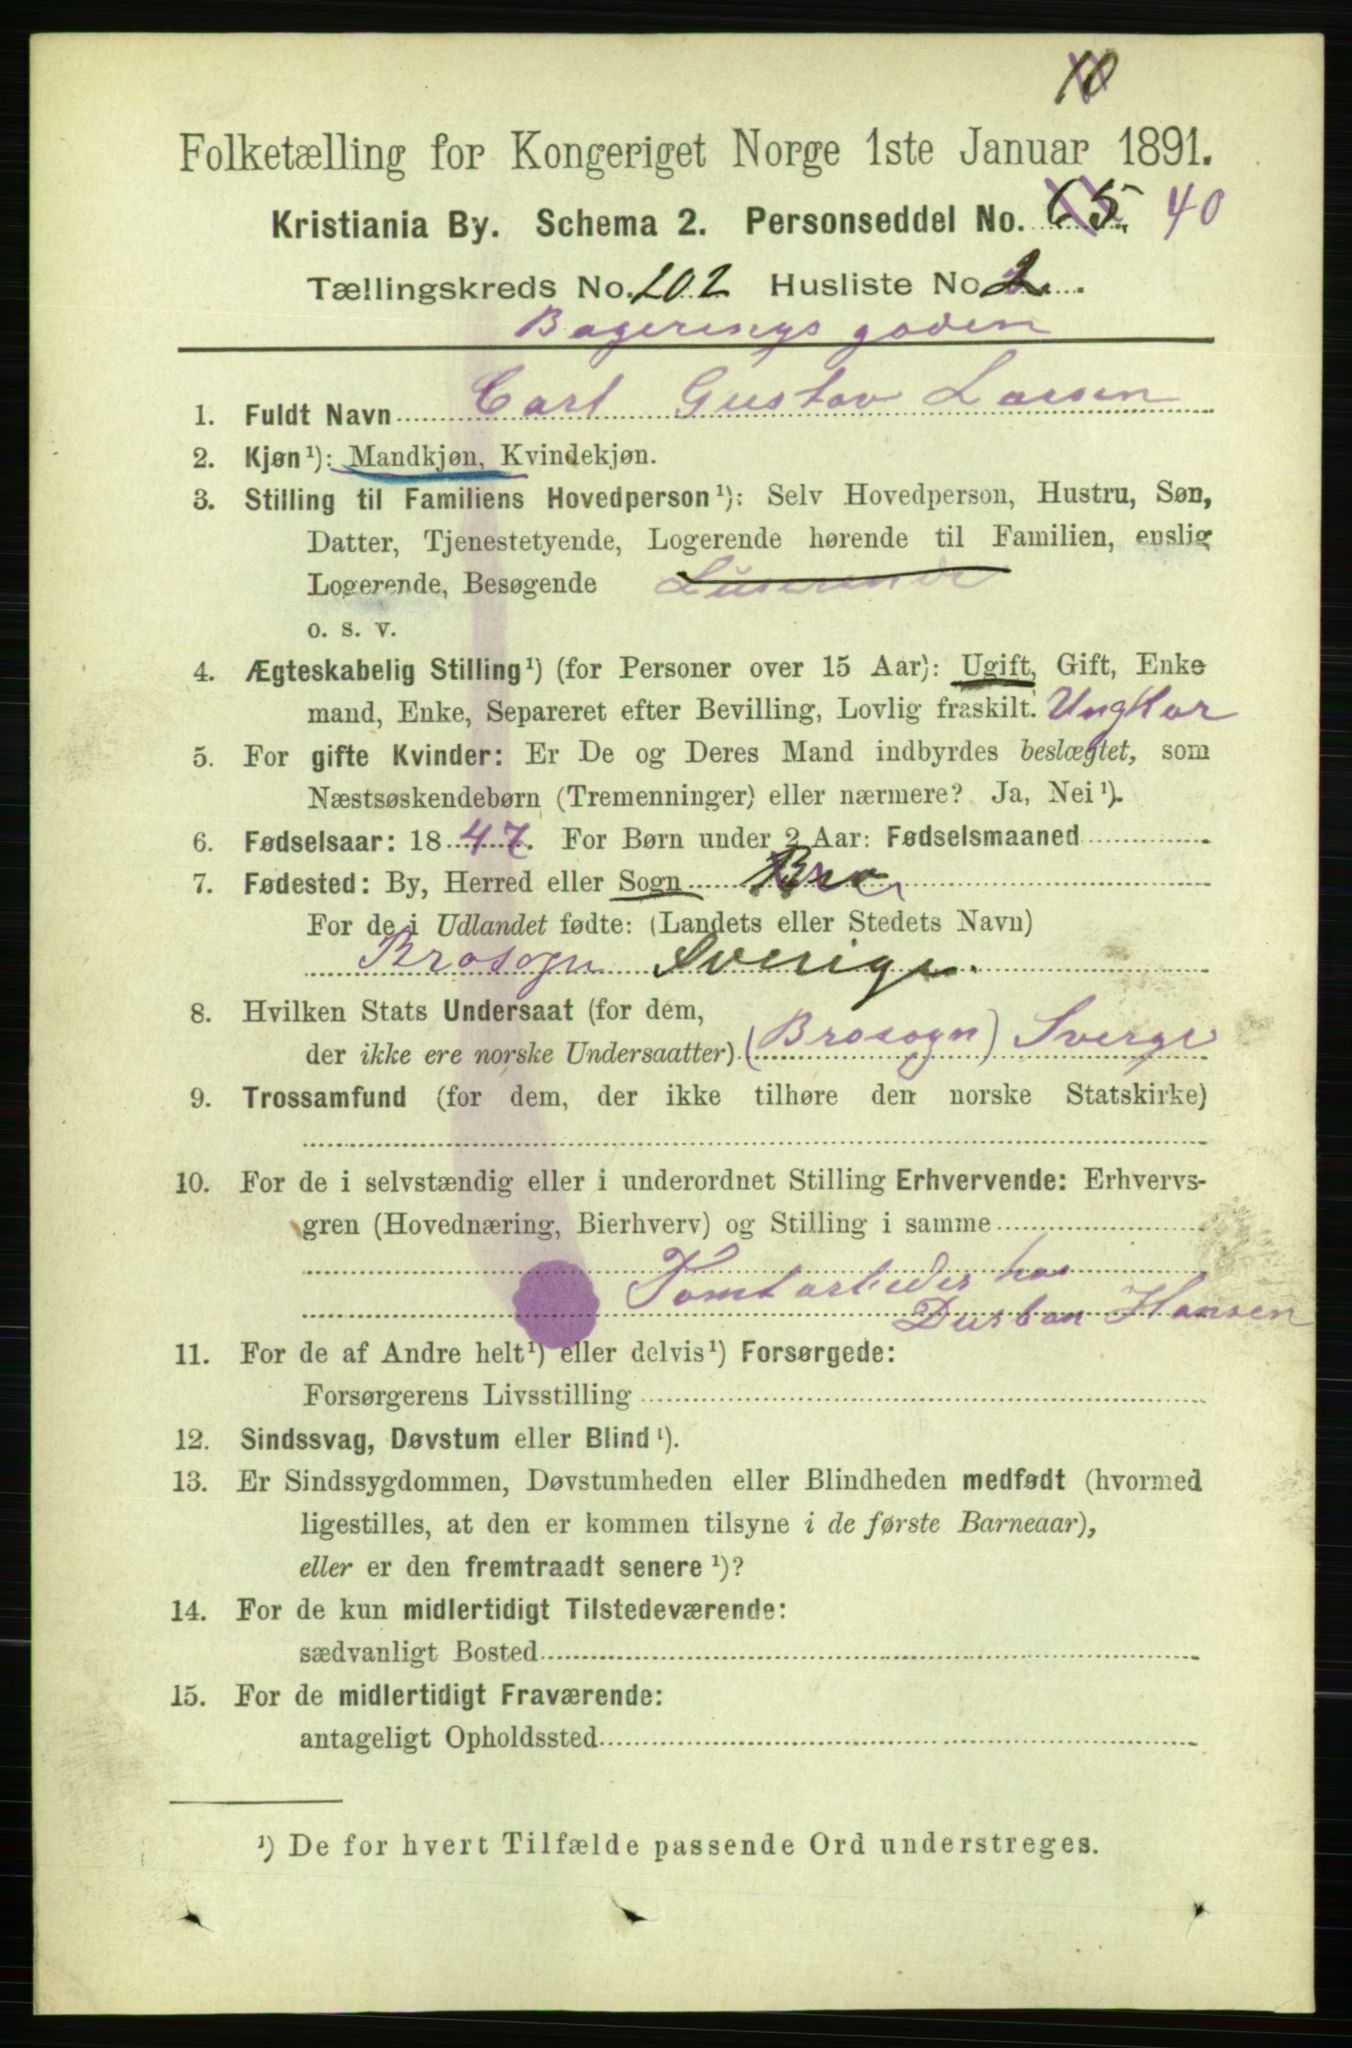 10
Folketælling for Kongeriget Norge 1ste Januar 1891.
Kristiania By. Schema 2. Personseddel No. 65. 40
Tællingskreds No. 202 Husliste No 2.
Bageringsgaden
1. Fuldt Navn Carl Gustav Larsen
2. Kjøn ¹): Mandkjøn, Kvindekjøn.
3. Stilling til Familiens Hovedperson ¹): Selv Hovedperson, Hustru, Søn,
Datter, Tjenestetyende, Logerende hørende til Familien, enslig
Logerende, Besøgende
o. s. v.
4. Ægteskabelig Stilling ¹) (for Personer over 15 Aar): Ugift, Gift, Enke
mand, Enke, Separeret efter Bevilling, Lovlig fraskilt. Ungkar
5. For gifte Kvinder: Er De og Deres Mand indbyrdes beslægtet, som
Næstsøskendebørn (Tremenninger) eller nærmere? Ja, Nei ¹).
6. Fødselsaar: 1847. For Børn under 2 Aar: Fødselsmaaned
7. Fødested: By, Herred eller Sogn Bro
For de i Udlandet fødte: (Landets eller Stedets Navn)
Brosogn Sverige.
8. Hvilken Stats Undersaat (for dem,
der ikke ere norske Undersaatter) (Brosogn) Sverge
9. Trossamfund (for dem, der ikke tilhøre den norske Statskirke)
10. For de i selvstændig eller i underordnet Stilling Erhvervende: Erhvervs-
gren (Hovednæring, Bierhverv) og Stilling i samme
Tomtarbeider hos
Hansen
11. For de af Andre helt ¹) eller delvis ¹) Forsørgede:
Forsørgerens Livsstilling
12. Sindssvag, Døvstum eller Blind ¹).
13. Er Sindssygdommen, Døvstumheden eller Blindheden medfødt (hvormed
ligestilles, at den er kommen tilsyne i de første Barneaar),
eller er den fremtraadt senere ¹)?
14. For de kun midlertidigt Tilstedeværende:
sædvanligt Bosted
15. For de midlertidigt Fraværende:
antageligt Opholdssted
¹) De for hvert Tilfælde passende Ord understreges.